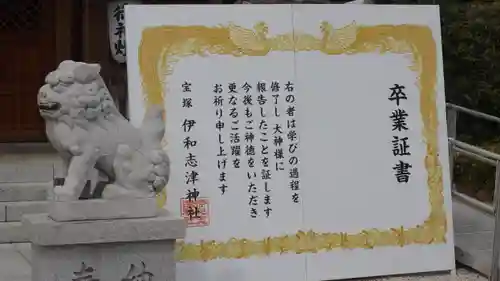 卒業証書
右の者は学びの過程を
修了し大神様に
報告したことを証します
今後もご神徳をいただき
更なるご活躍を
お祈り申し上げます
宝塚 伊和志津神社